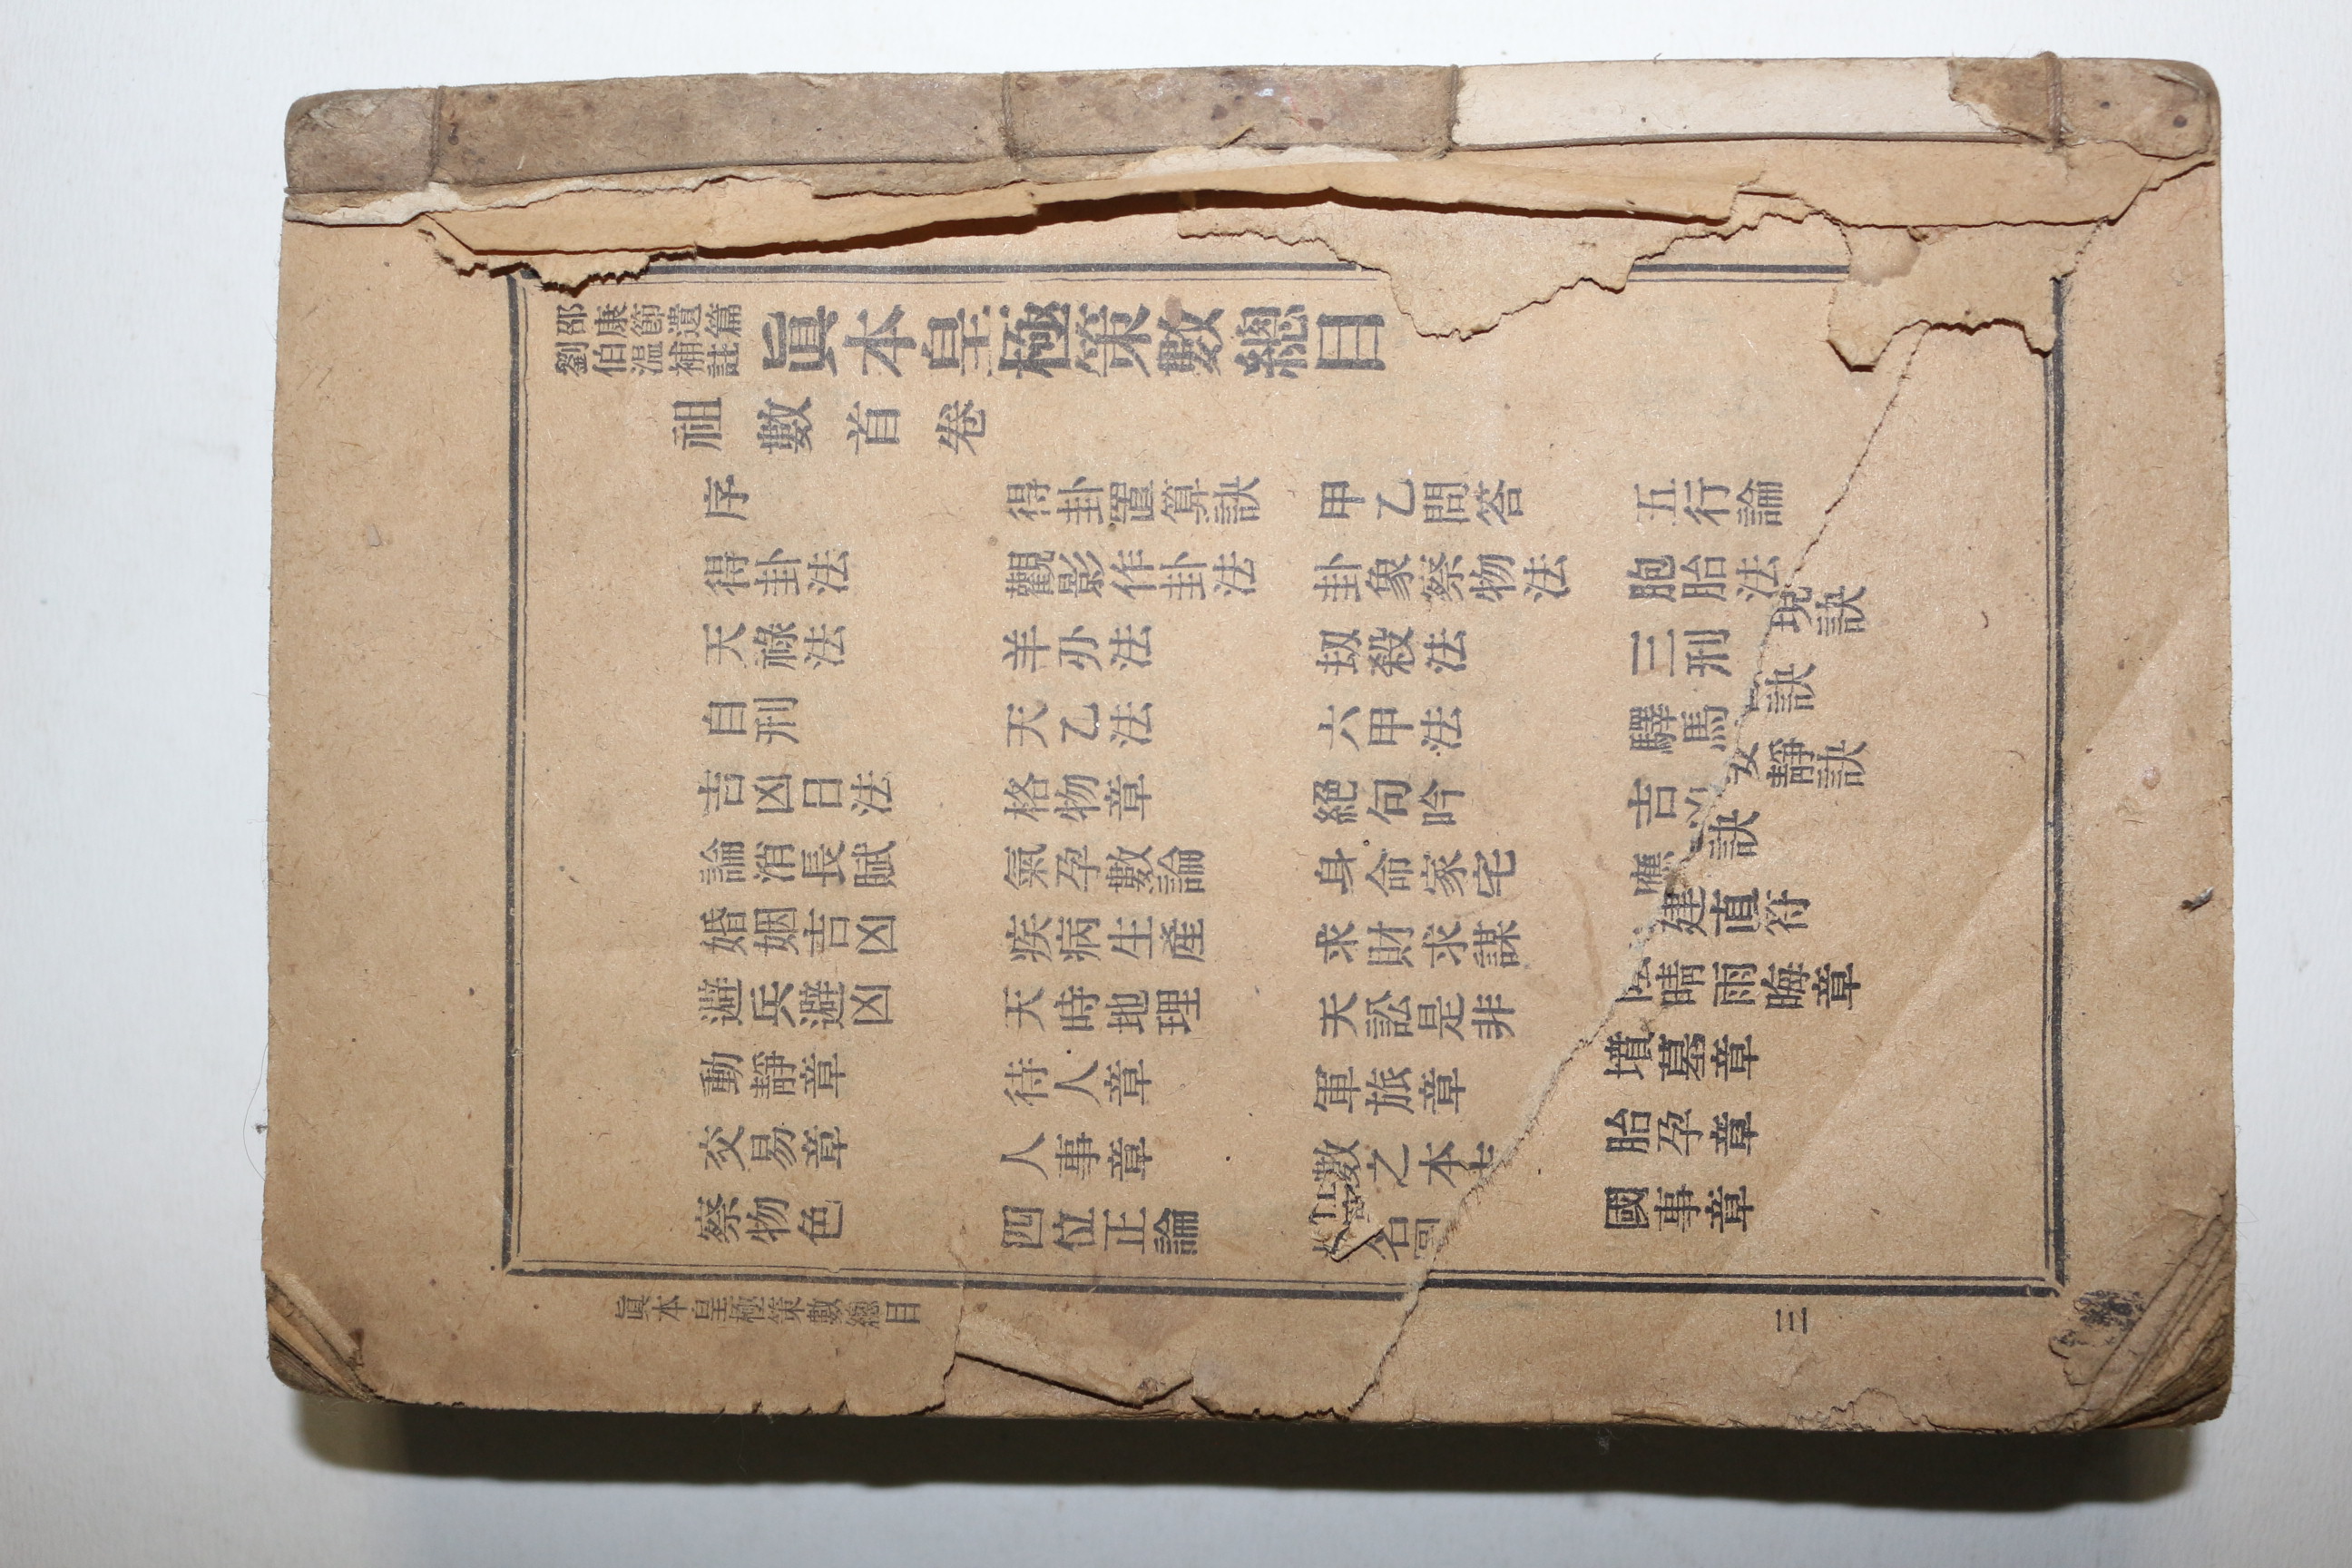 邵康節遺篇
劉伯温補註
眞本皇極策數總目
祖數首卷
序 得卦置算訣 甲乙問答 五行論
得卦法 觀影作卦法 卦象察物法 胞胎法 現訣
天祿法 羊刅法 刼殺法 三刑 訣
自刑 天乙法 六甲法 驛馬 安靜訣
吉凶日法 格物章 絕句吟 吉 訣
論消長賦 氣孕數論 身命家宅 應
婚姻吉凶 疾病生產 求財求謀 建直符
避兵避凶 天時地理 天訟是非 陰晴雨晦章
動靜章 待人章 軍旅章 墳墓章
交易章 人事章 數之本 胎孕章
察物色 四位正論 名 國事章
眞本皇極策數總目 三